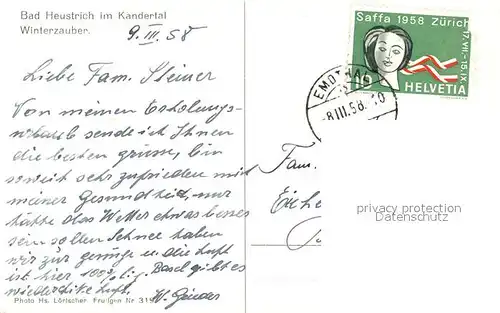 Bad Heustrich im Kandertal
Winterzauber.
9. III. 58
Liebe Fam. Steiner
Von meinen Erholungs-
urlaub sende ich Ihnen
die besten grüsse, bin
soweit sehr zufrieden mit
meiner Gesundheit, nur
hätte das Wetter etwas besser
sein sollen Schnee haben
wir zur genüge u. die Luft
ist hier 100% ig. Basel gibt es
wieder dike Luft.
Photo Hs. Lörtscher, Frutigen Nr. 319
Saffa 1958 Zürich
17. VII.-15. IX.
HELVETIA
8.III.58.
Fam.
privacy protection
Datenschutz